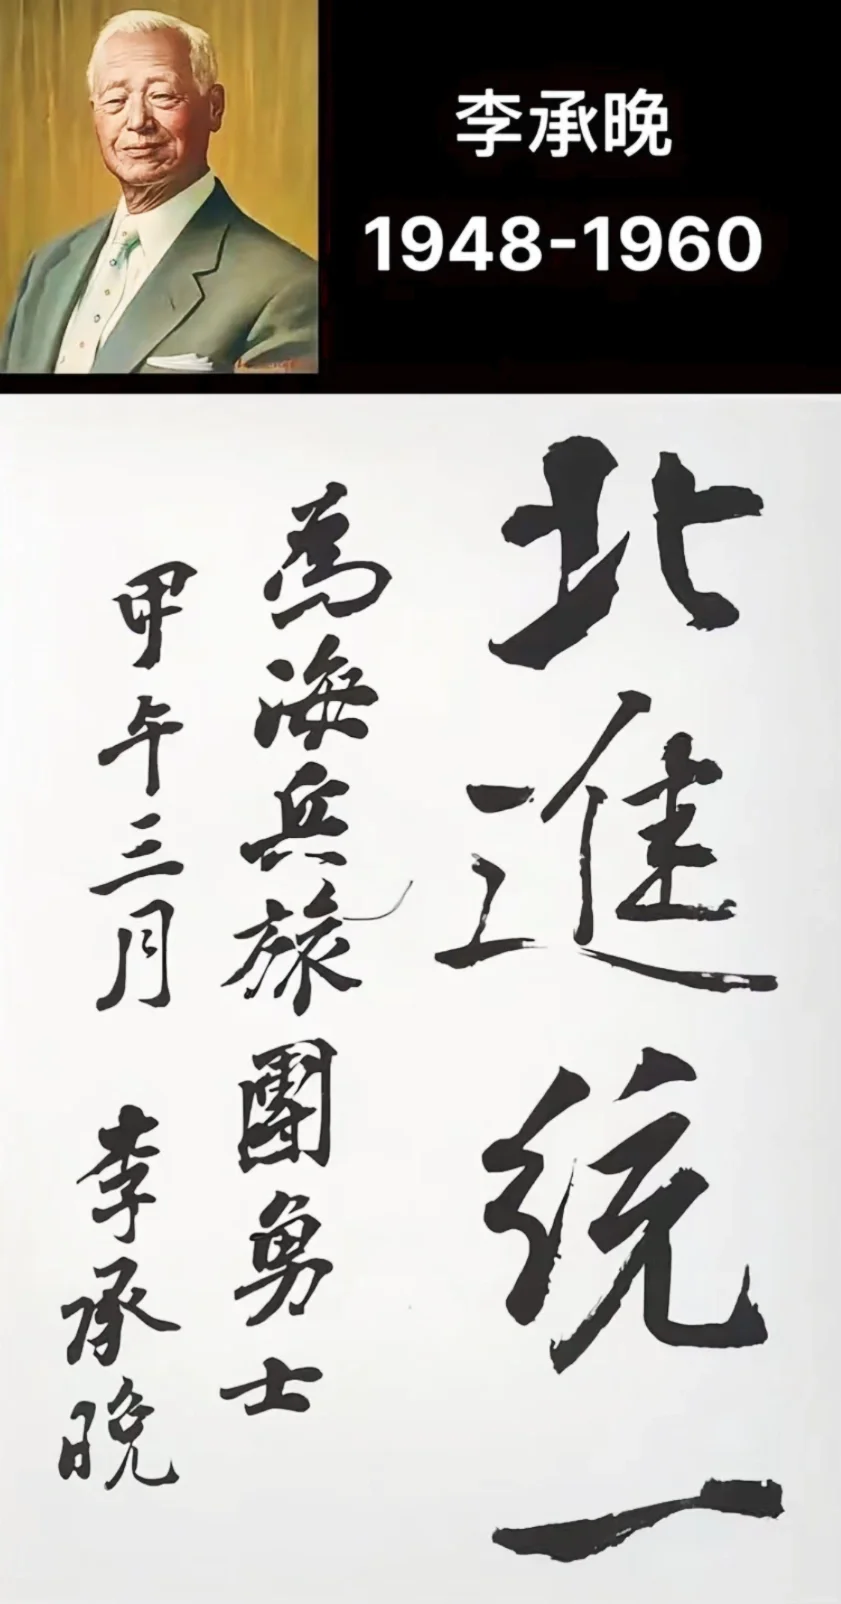 李承晚
1948-1960
北進统一
為海兵旅團勇士
甲午三月 李承晚